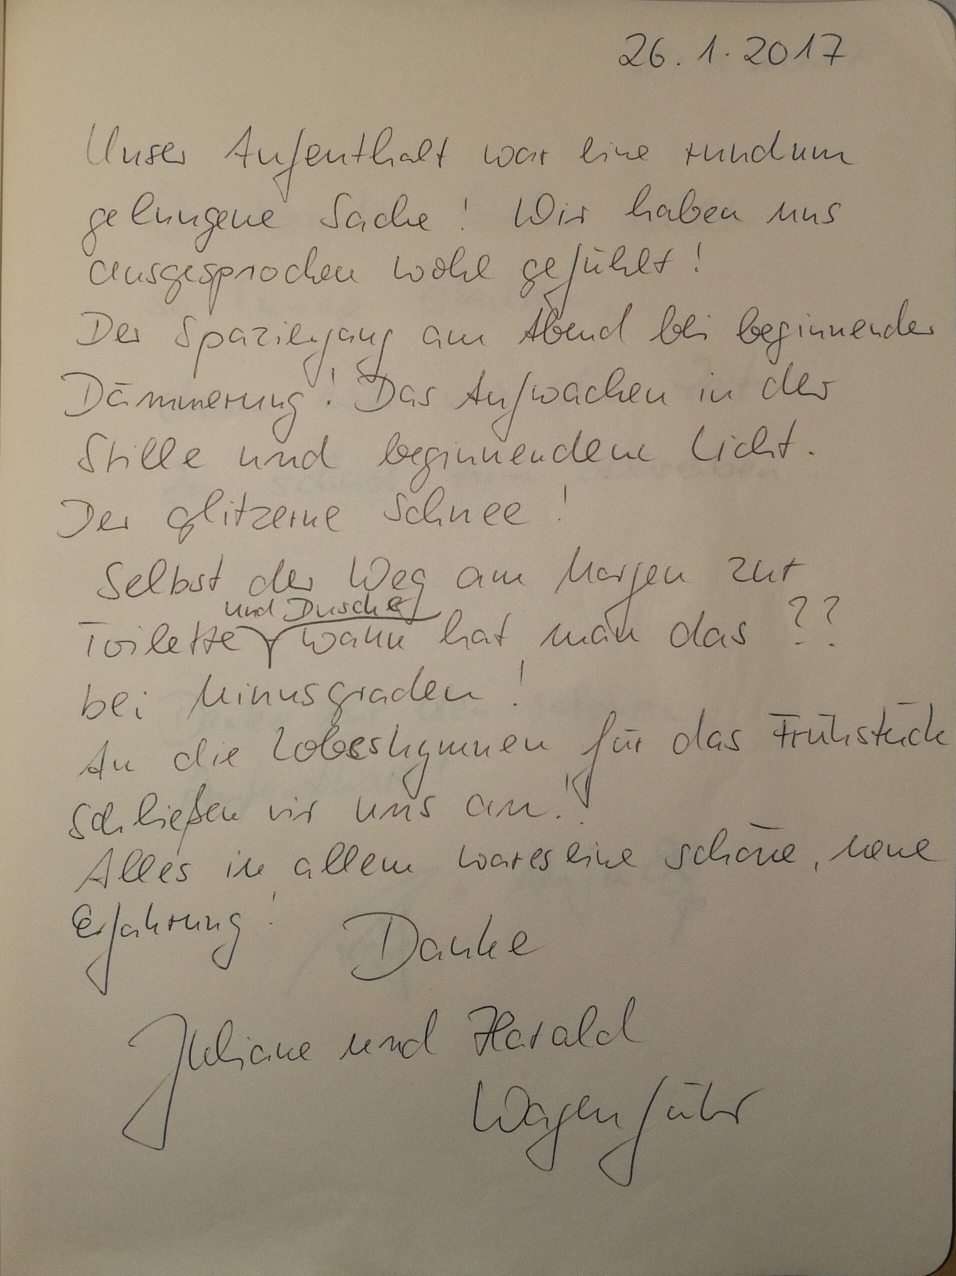 26.1.2017
Unser Aufenthalt war eine rundum
gelungene Sache! Wir haben uns
ausgesprochen wohl gefühlt!
Der Spaziergang am Abend bei beginnender
Dämmerung! Das Aufwachen in der
Stille und beginnendem Licht.
Der glitzerne Schnee!
Selbst der Weg am Morgen zur
und Dusche
Toilette wann hat man das ??
bei Minusgraden!
An die Lobeshymnen für das Frühstück
schließen wir uns an!
Alles in allem war es eine schöne, neue
Erfahrung!
Danke
Juliane und Harald
Wagenführ